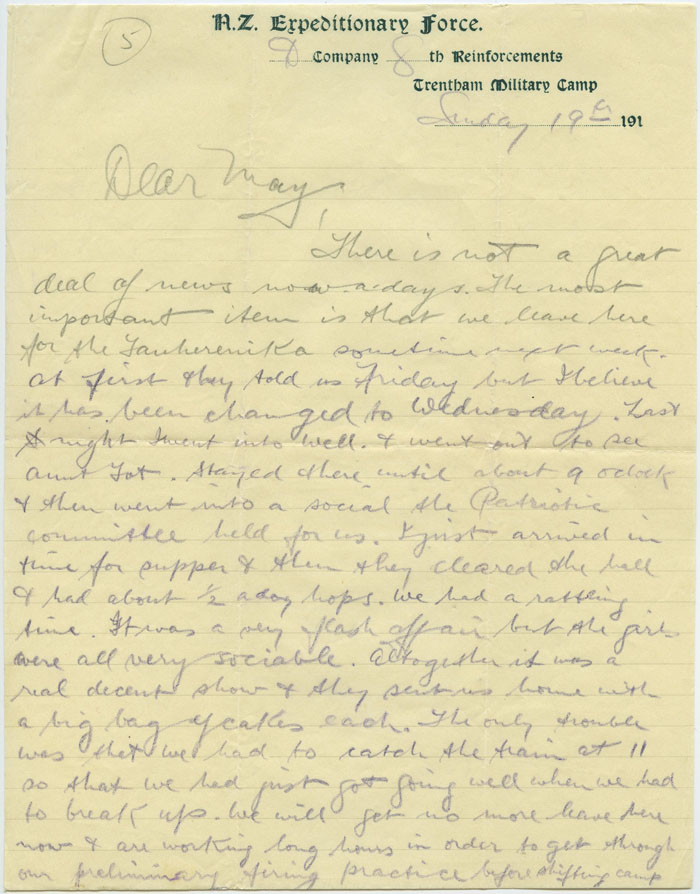 5
N.Z. Expeditionary Force.
D Company 8 th Reinforcements
Trentham Military Camp
Sunday 19th 191
Dear May,
There is not a great
deal of news now-a-days. The most
important item is that we leave here
for the Tauherenika sometime next week.
At first they told us Friday but I believe
it has been changed to Wednesday. Last
night I went into Well. & went out to see
aunt Tot. Stayed there until about 9 oclock
& then went into a social the Patriotic
committee held for us. I just arrived in
time for supper & then they cleared the hall
& had about ½ a doz hops. We had a rattling
time. It was a very flash affair but the girls
were all very sociable. Altogether it was a
real decent show & they sent us home with
a big bag of cakes each. The only trouble
was that we had to catch the train at 11
so that we had just got going well when we had
to break up. We will get no more leave here
now & are working long hours in order to get through
our preliminary firing practice before shifting camp